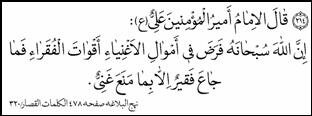 ﴿٢١٤﴾ قَالَ الإمَامُ أَمِيرُ الْمُؤْمِنِينَ عَلِيٌّ (ع):
إِنَّ اللهَ سُبْحَانَهُ فَرَضَ فِي أَمْوَالِ الْأَغْنِيَاءِ أَقْوَاتَ الْفُقَرَاءِ فَمَا
جَاعَ فَقِيرٌ إِلَّا بِمَا مَنَعَ غَنِيٌّ.
نهج البلاغه صفحه ٤٧٨ الكلمات القصار/٣٢٠